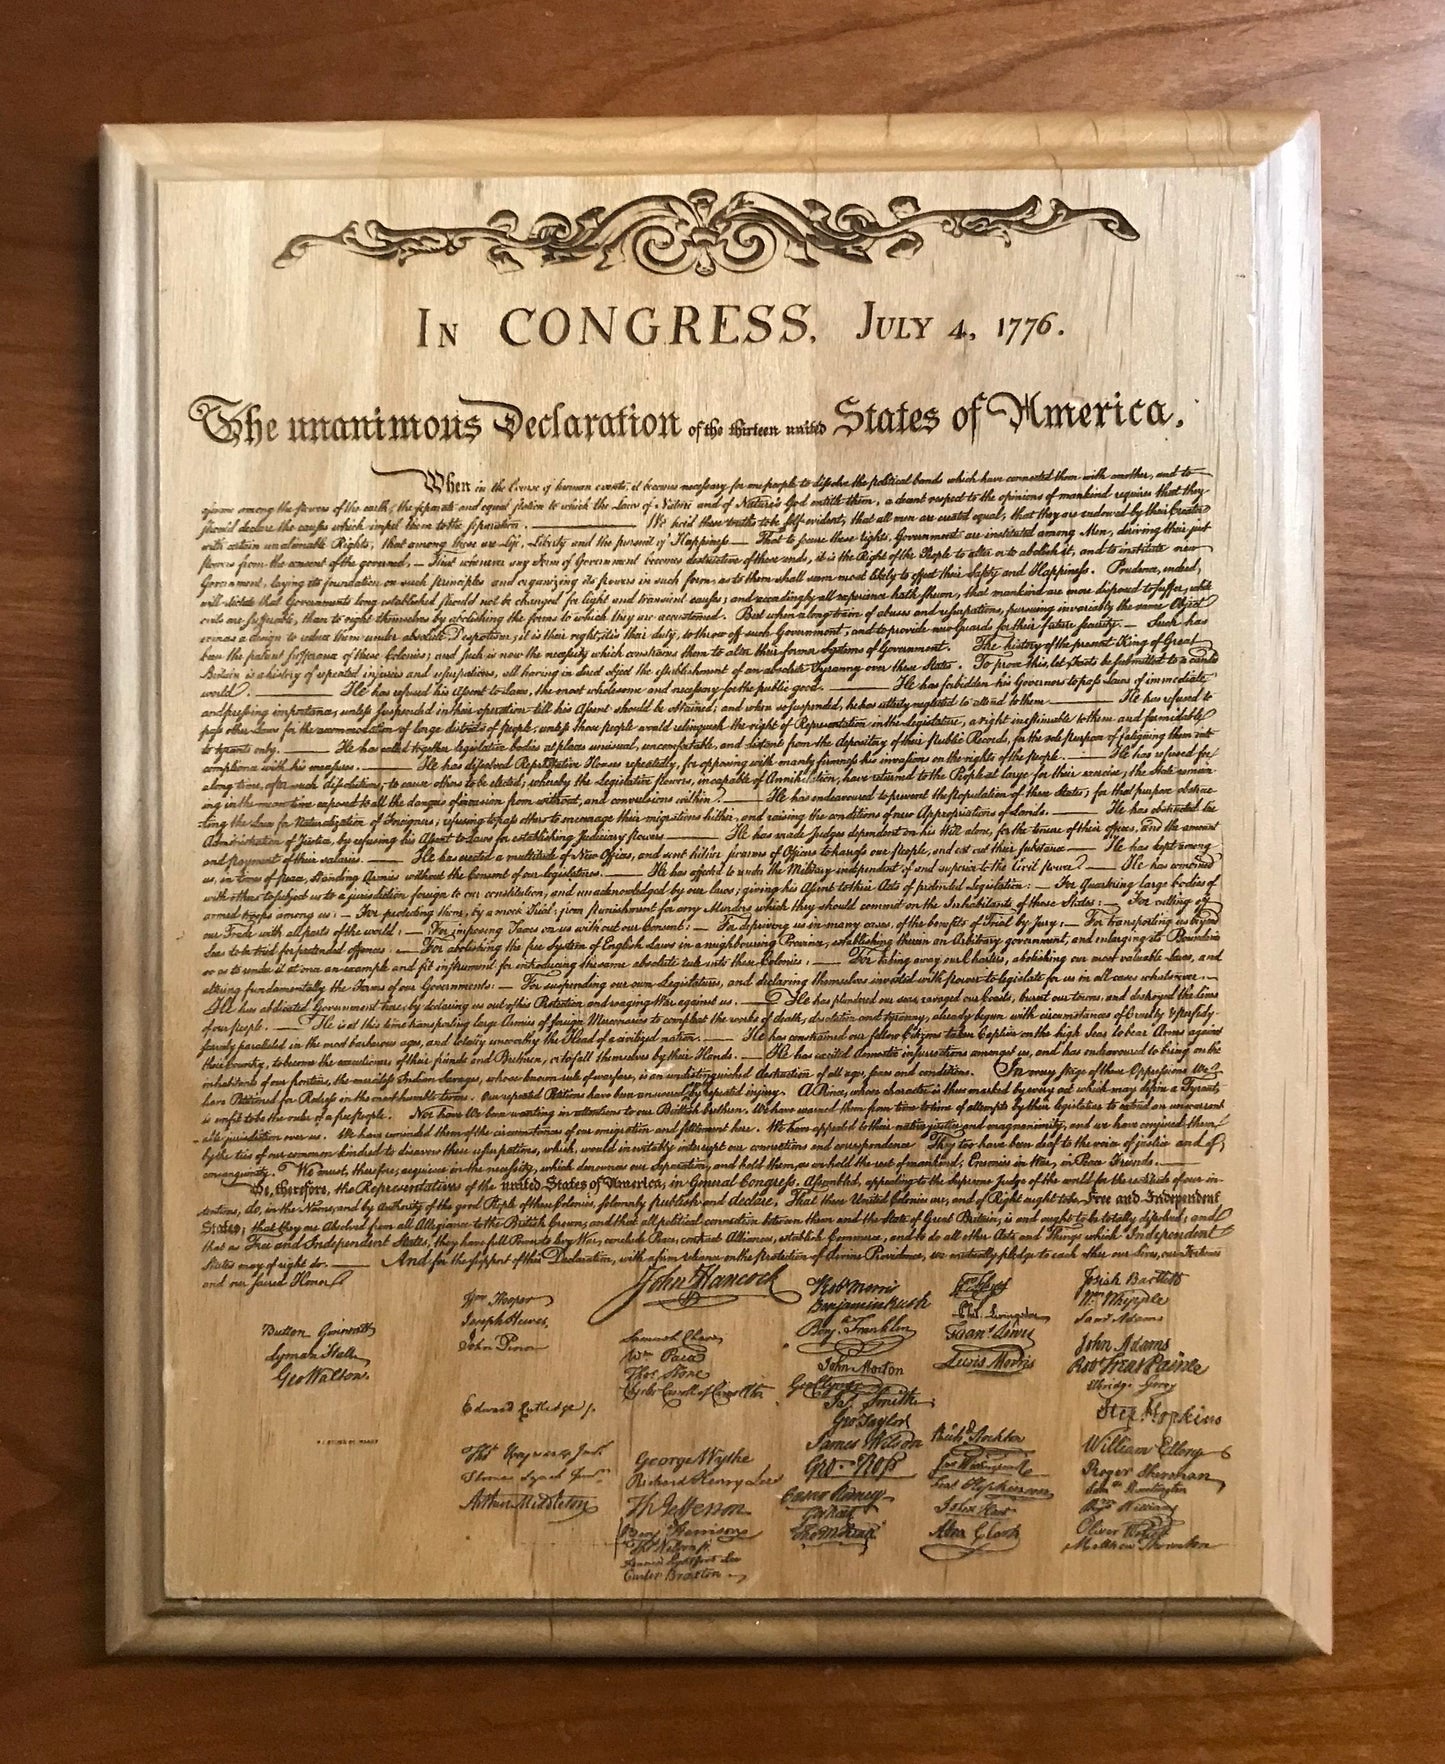 In CONGRESS, July 4, 1776.
The unanimous Declaration of the thirteen united States of America,
When in the Course of human events, it becomes necessary for one people to dissolve the political bands which have connected them with another, and to
assume among the powers of the earth, the separate and equal station to which the Laws of Nature and of Nature's God entitle them, a decent respect to the opinions of mankind requires that they
should declare the causes which impel them to the separation. — We hold these truths to be self-evident, that all men are created equal, that they are endowed by their Creator
with certain unalienable Rights, that among these are Life, Liberty and the pursuit of Happiness — That to secure these rights, Governments are instituted among Men, deriving their just
powers from the consent of the governed, — That whenever any Form of Government becomes destructive of these ends, it is the Right of the People to alter or to abolish it, and to institute new
Government, laying its foundation on such principles and organizing its powers in such form, as to them shall seem most likely to effect their Safety and Happiness. Prudence, indeed,
will dictate that Governments long established should not be changed for light and transient causes; and accordingly all experience hath shewn, that mankind are more disposed to suffer, while
evils are sufferable, than to right themselves by abolishing the forms to which they are accustomed. But when a long train of abuses and usurpations, pursuing invariably the same Object
evinces a design to reduce them under absolute Despotism, it is their right, it is their duty, to throw off such Government, and to provide new Guards for their future security. — Such has
been the patient sufferance of these Colonies; and such is now the necessity which constrains them to alter their former Systems of Government. The history of the present King of Great
Britain is a history of repeated injuries and usurpations, all having in direct object the establishment of an absolute Tyranny over these States. To prove this, let Facts be submitted to a candid
world. — He has refused his Assent to Laws, the most wholesome and necessary for the public good. — He has forbidden his Governors to pass Laws of immediate
and pressing importance, unless suspended in their operation till his Assent should be obtained; and when so suspended, he has utterly neglected to attend to them — He has refused to
pass other Laws for the accommodation of large districts of people, unless those people would relinquish the right of Representation in the Legislature, a right inestimable to them and formidable
to tyrants only. — He has called together legislative bodies at places unusual, uncomfortable, and distant from the depository of their Public Records, for the sole purpose of fatiguing them into
compliance with his measures. — He has dissolved Representative Houses repeatedly, for opposing with manly firmness his invasions on the rights of the people. — He has refused for
a long time, after such dissolutions, to cause others to be elected; whereby the Legislative powers, incapable of Annihilation, have returned to the People at large for their exercise; the State remain-
ing in the mean time exposed to all the dangers of invasion from without, and convulsions within. — He has endeavoured to prevent the population of these States; for that purpose obstruc-
ting the Laws for Naturalization of Foreigners; refusing to pass others to encourage their migrations hither, and raising the conditions of new Appropriations of Lands. — He has obstructed the
Administration of Justice, by refusing his Assent to Laws for establishing Judiciary powers — He has made Judges dependent on his Will alone, for the tenure of their offices, and the amount
and payment of their salaries. — He has erected a multitude of New Offices, and sent hither swarms of Officers to harrass our people, and eat out their substance — He has kept among
us, in times of peace, Standing Armies without the Consent of our legislatures. — He has affected to render the Military independent of and superior to the Civil power. — He has combined
with others to subject us to a jurisdiction foreign to our constitution, and unacknowledged by our laws; giving his Assent to their Acts of pretended Legislation: — For Quartering large bodies of
armed troops among us: — For protecting them, by a mock Trial, from punishment for any Murders which they should commit on the Inhabitants of these States: — For cutting off
our Trade with all parts of the world: — For imposing Taxes on us without our Consent: — For depriving us in many cases, of the benefits of Trial by Jury: — For transporting us beyond
Seas to be tried for pretended offences: — For abolishing the free System of English Laws in a neighbouring Province, establishing therein an Arbitrary government, and enlarging its Boundaries
so as to render it at once an example and fit instrument for introducing the same absolute rule into these Colonies: — For taking away our Charters, abolishing our most valuable Laws, and
altering fundamentally the Forms of our Governments: — For suspending our own Legislatures, and declaring themselves invested with power to legislate for us in all cases whatsoever. —
He has abdicated Government here, by declaring us out of his Protection and waging War against us. — He has plundered our seas, ravaged our Coasts, burnt our towns, and destroyed the lives
of our people. — He is at this time transporting large Armies of foreign Mercenaries to compleat the works of death, desolation and tyranny, already begun with circumstances of Cruelty & perfidy
scarcely paralleled in the most barbarous ages, and totally unworthy the Head of a civilized nation. — He has constrained our fellow Citizens taken Captive on the high Seas to bear Arms against
their Country, to become the executioners of their friends and Brethren, or to fall themselves by their Hands. — He has excited domestic insurrections amongst us, and has endeavoured to bring on the
inhabitants of our frontiers, the merciless Indian Savages, whose known rule of warfare, is an undistinguished destruction of all ages, sexes and conditions. In every stage of these Oppressions We
have Petitioned for Redress in the most humble terms: Our repeated Petitions have been answered by repeated injury. A Prince, whose character is thus marked by every act which may define a Tyrant,
is unfit to be the ruler of a free people. Nor have We been wanting in attentions to our Brittish brethren. We have warned them from time to time of attempts by their legislature to extend an unwarrant-
able jurisdiction over us. We have reminded them of the circumstances of our emigration and settlement here. We have appealed to their native justice and magnanimity, and we have conjured them
by the ties of our common kindred to disavow these usurpations, which, would inevitably interrupt our connections and correspondence They too have been deaf to the voice of justice and of
consanguinity. We must, therefore, acquiesce in the necessity, which denounces our Separation, and hold them, as we hold the rest of mankind, Enemies in War, in Peace Friends. —
We, therefore, the Representatives of the united States of America, in General Congress, Assembled, appealing to the Supreme Judge of the world for the rectitude of our in-
tentions, do, in the Name, and by Authority of the good People of these Colonies, solemnly publish and declare, That these United Colonies are, and of Right ought to be Free and Independent
States; that they are Absolved from all Allegiance to the British Crown, and that all political connection between them and the State of Great Britain, is and ought to be totally dissolved; and
that as Free and Independent States, they have full Power to levy War, conclude Peace, contract Alliances, establish Commerce, and to do all other Acts and Things which Independent
States may of right do. — And for the support of this Declaration, with a firm reliance on the Protection of divine Providence, we mutually pledge to each other our Lives, our Fortunes
and our sacred Honor.
Button Gwinnett
Lyman Hall
Geo Walton.
Wm Hooper
Joseph Hewes,
John Penn
Edward Rutledge /.
Thos Heyward Junr.
Thomas Lynch Junr.
Arthur Middleton
John Hancock
Samuel Chase
Wm Paca
Thos Stone
Charles Carroll of Carrollton
George Wythe
Richard Henry Lee
Th Jefferson
Benj Harrison
Thos Nelson jr.
Francis Lightfoot Lee
Carter Braxton
Robt Morris
Benjamin Rush
Benja. Franklin
John Morton
Geo Clymer
Jas. Smith.
Geo. Taylor
James Wilson
Geo. Ross
Caesar Rodney
Geo Read
Tho M:Kean
Phil. Livingston
Frans. Lewis
Lewis Morris
Richd. Stockton
Jno Witherspoon
Fras. Hopkinson
John Hart
Abra Clark
Josiah Bartlett
Wm Whipple
Saml Adams
John Adams
Robt Treat Paine
Elbridge Gerry
Step. Hopkins
William Ellery
Roger Sherman
Samel Huntington
Wm Williams
Oliver Wolcott
Matthew Thornton